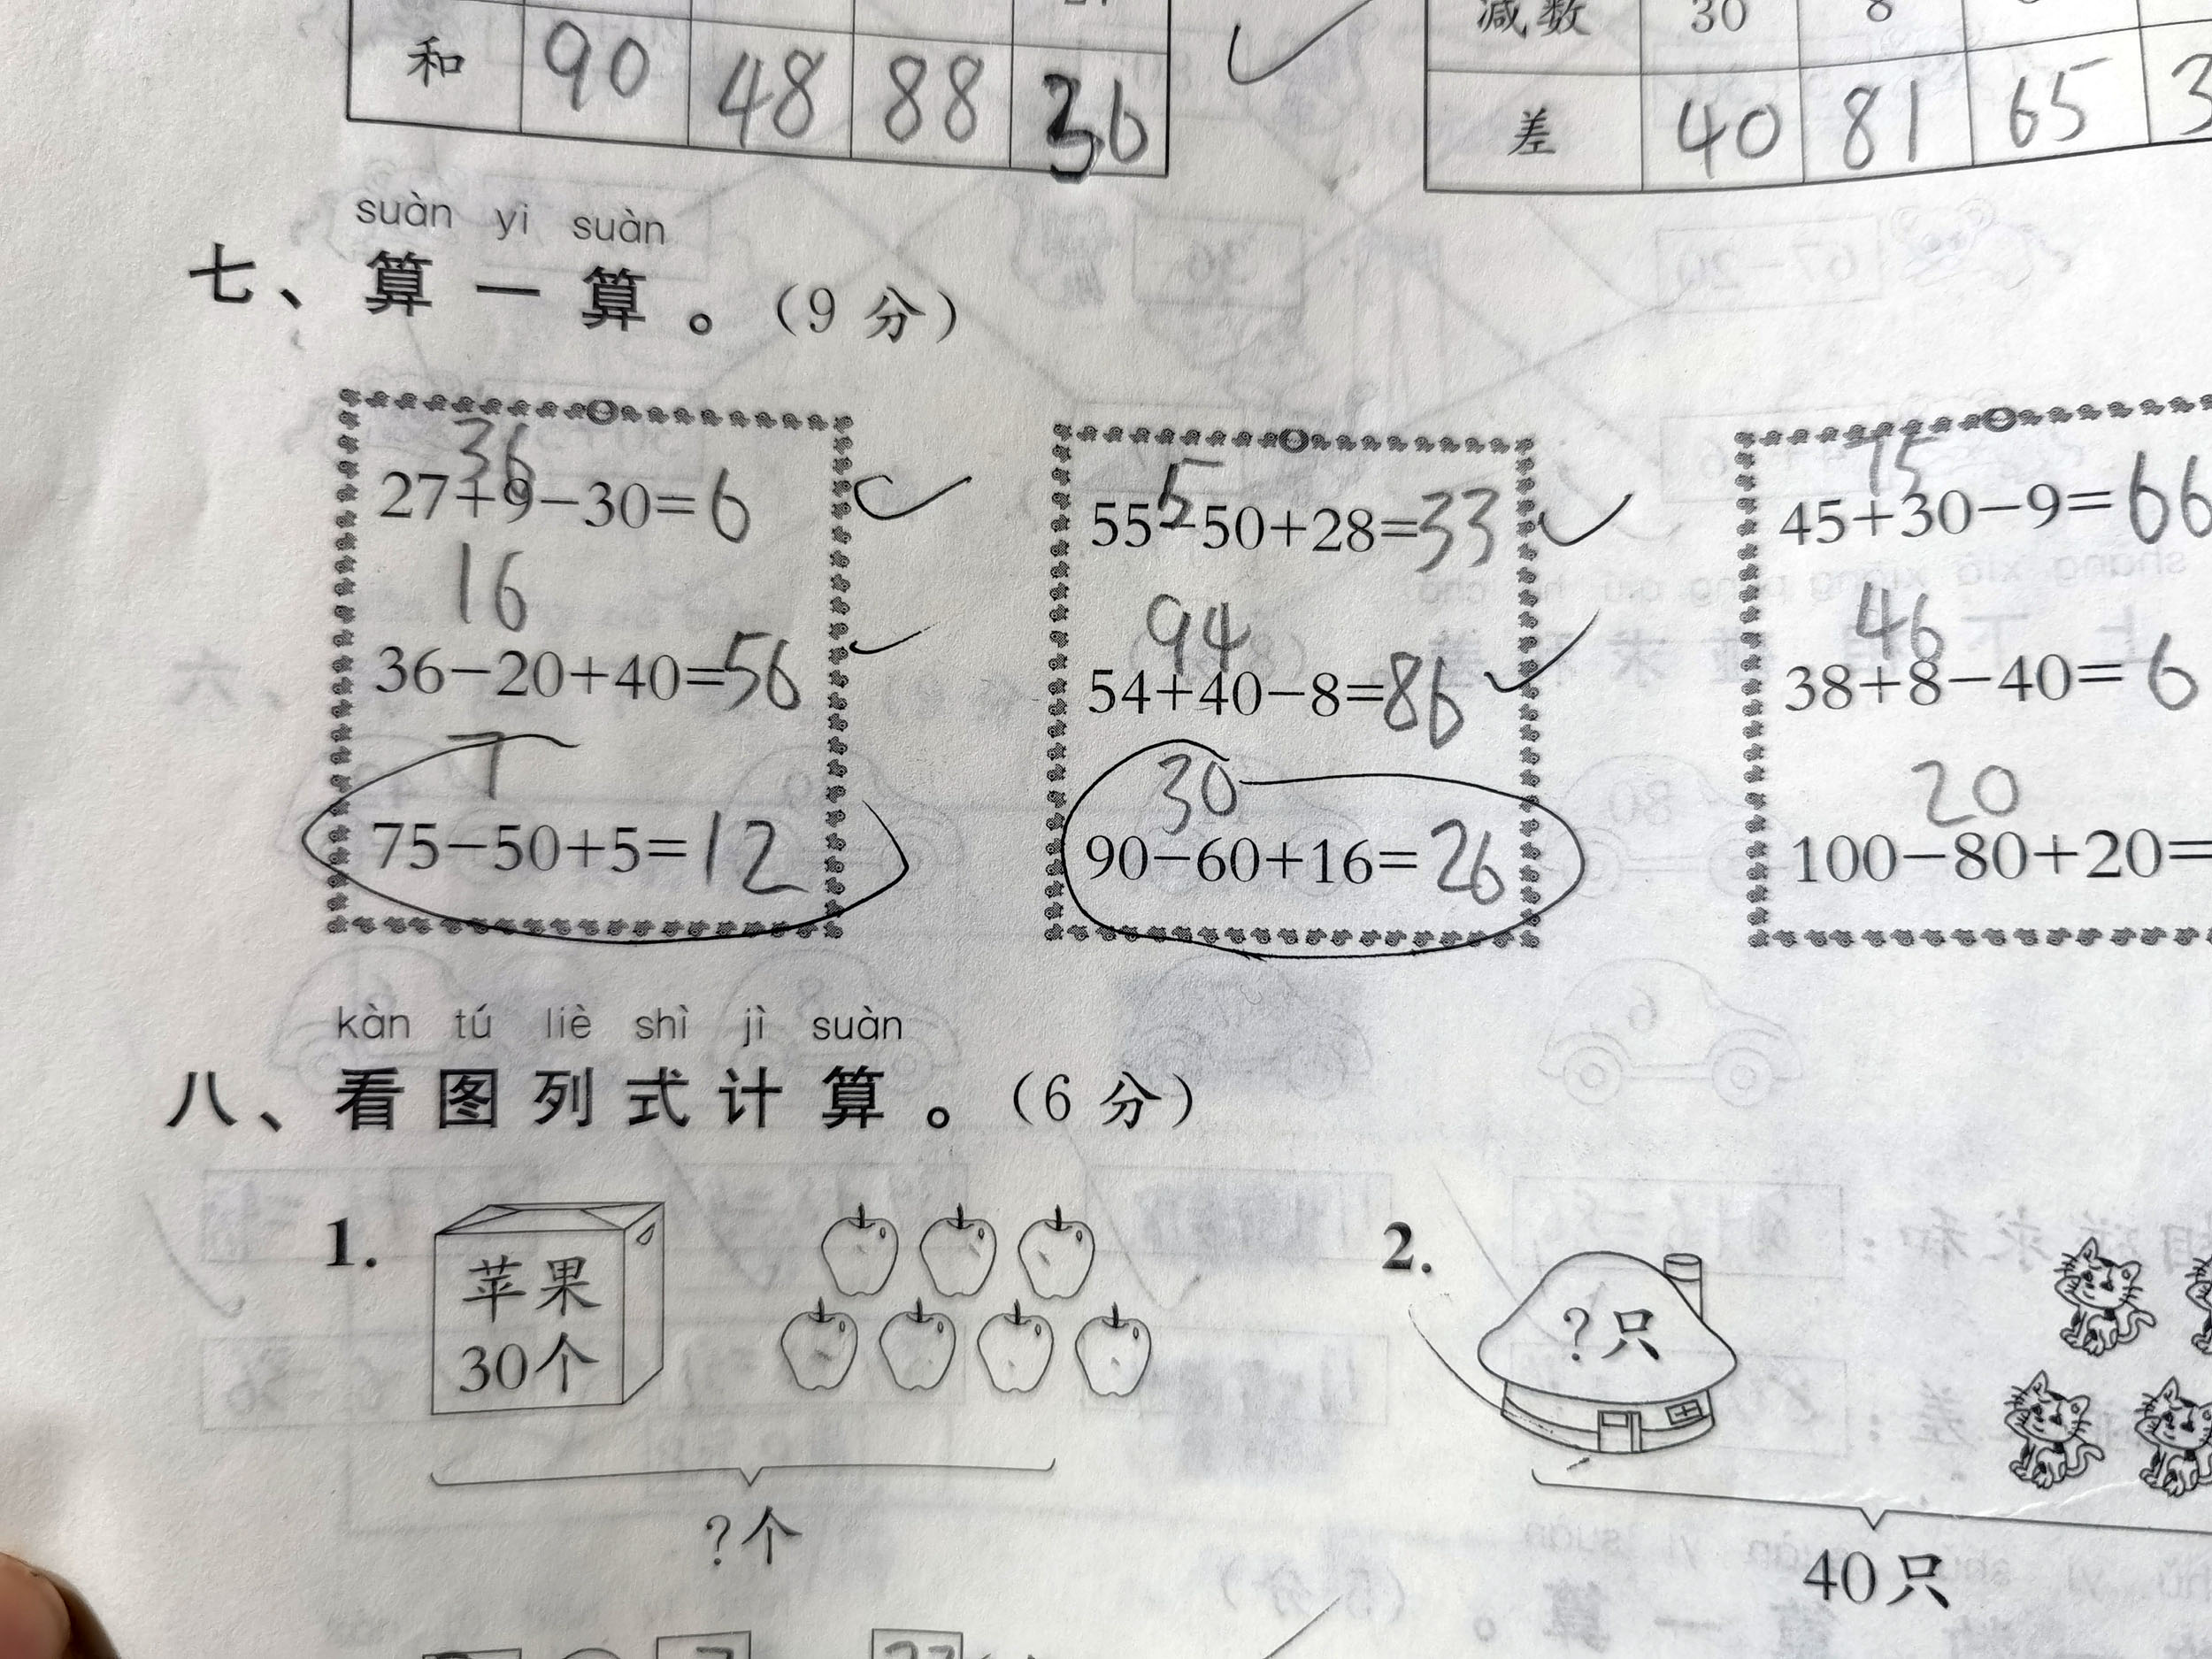 减数 30 8
和 90 48 88 36
差 40 81 65 3
suàn yi suàn
七、算一算。(9分)
36
27+9-30=6
16
36-20+40=56
7
75-50+5=12
5
55-50+28=33
94
54+40-8=86
30
90-60+16=26
75
45+30-9=66
46
38+8-40=6
20
100-80+20=
kàn tú liè shì jì suàn
八、看图列式计算。(6分)
1.
苹果
30个
?个
2.
?只
40只